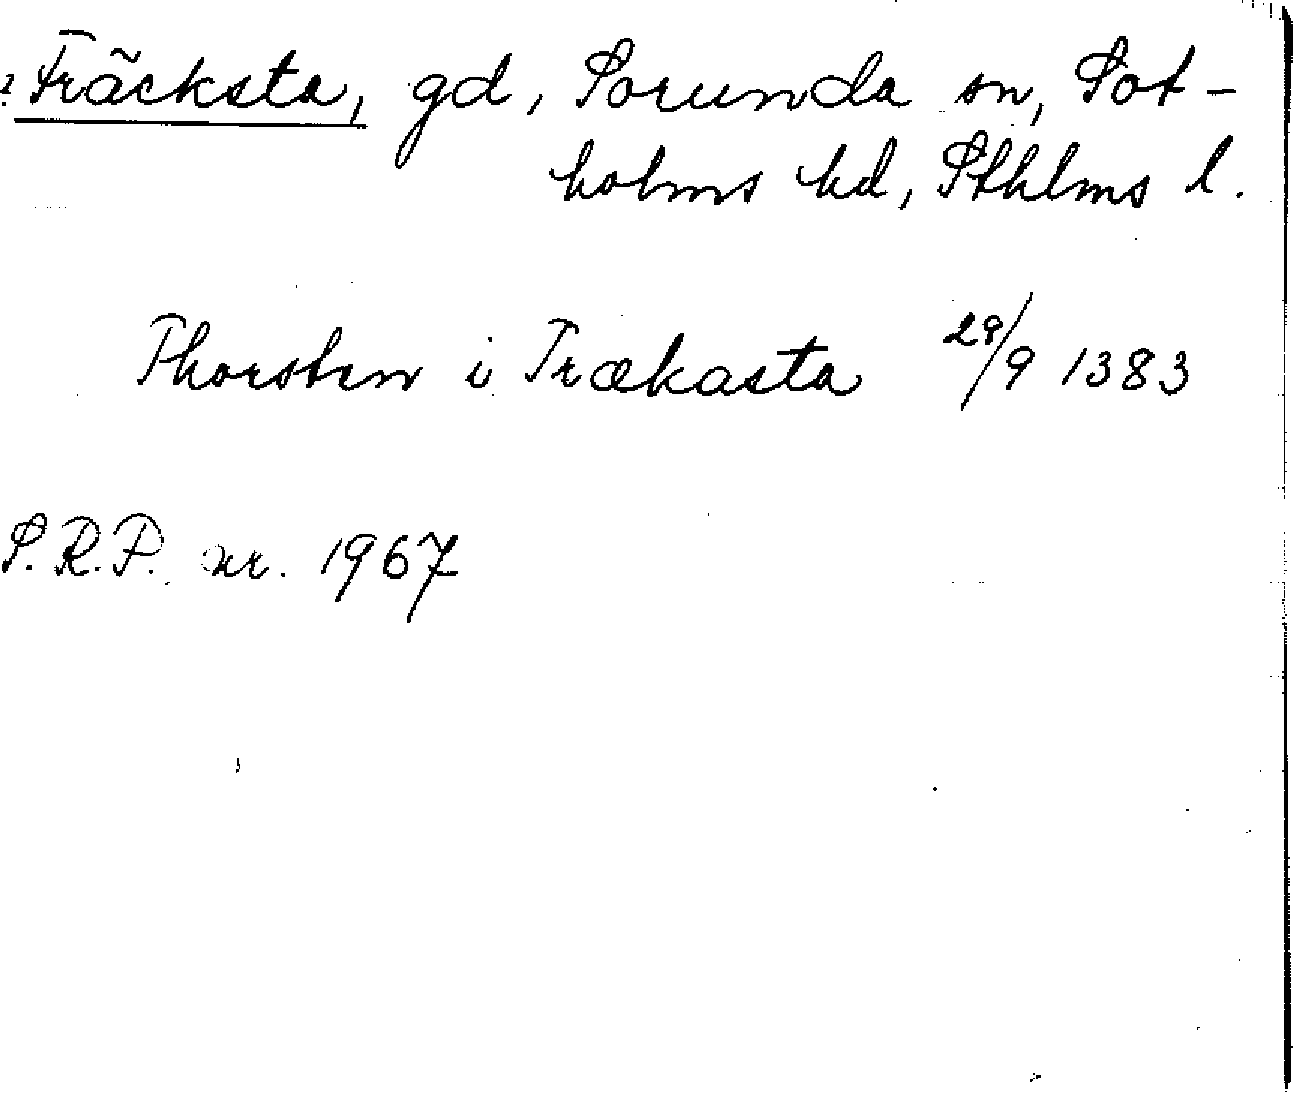 ? Träcksta, gd, Sorunda sn, Sot-
holms hd, Sthlms l.
Thorsten i Trækasta 29/9 1383
S.R.P. nr. 1967